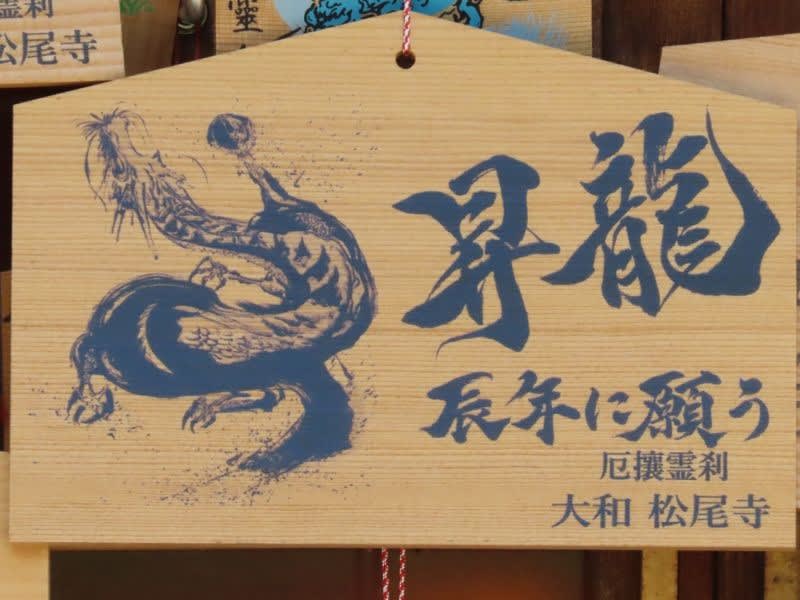 霊刹
松尾寺
昇龍
辰年に願う
厄攘霊刹
大和 松尾寺